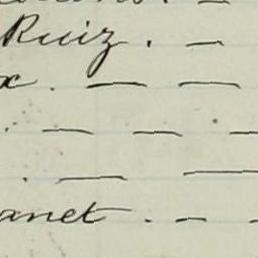 Ruiz. —
x. — —
. — — —
. — —
anet. — —